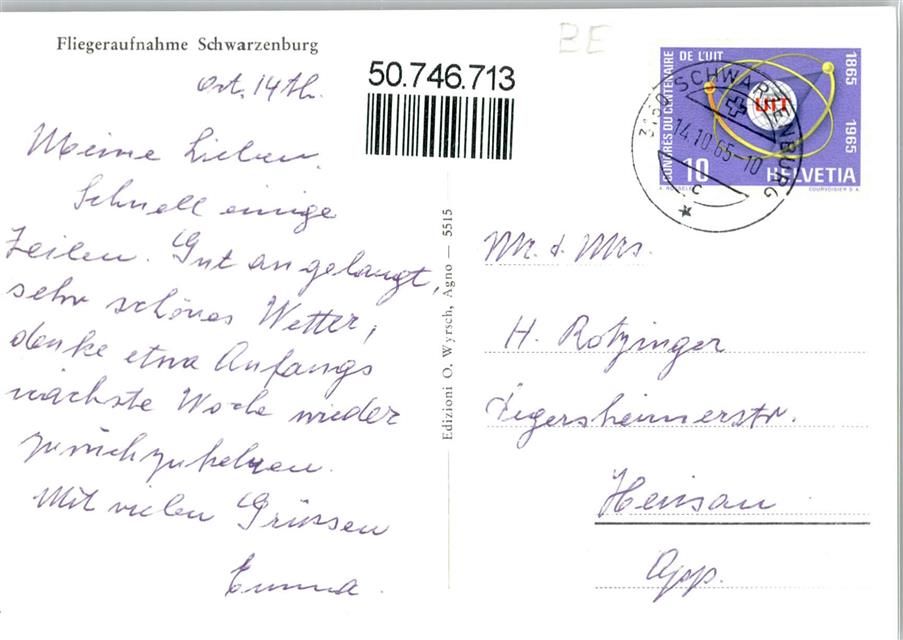 Fliegeraufnahme Schwarzenburg
BE
50.746.713
Oct. 14th.
Meine Lieben,
Schnell einige
Zeilen. Gut angelangt,
sehr schönes Wetter,
denke etwa Anfangs
nächste Woche wieder
zurückzukehren.
Mit vielen Grüssen
Emma.
Edizioni O. Wyrsch, Agno — 5515
CONGRES DU CENTENAIRE
DE L'UIT
1865
1965
UIT
10
HELVETIA
COURVOISIER S.A.
SCHWARZENBURG
14.10.65-10
C
Mr. & Mrs.
H. Rotzinger
Degersheimerstr.
Herisau
App.